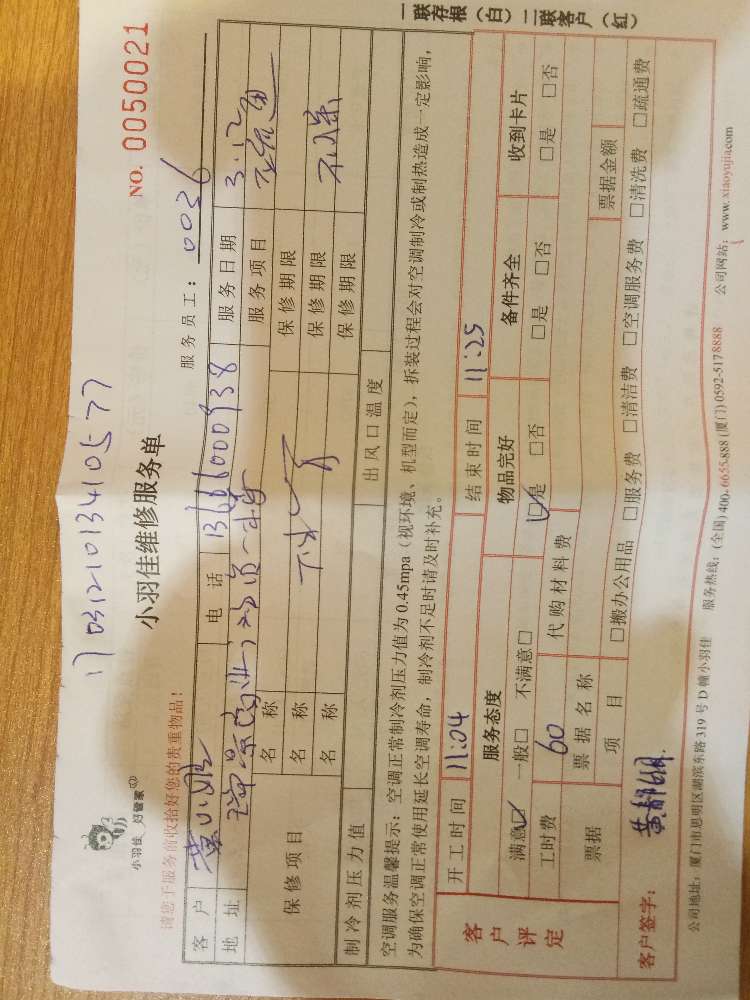 一联存根（白）二联客户（红）
1703121013410577
小羽佳 好管家
小羽佳维修服务单
NO. 0050021
请您于服务前收拾好您的贵重物品！
服务员工： 0036
客 户 电 话 服务日期 3.12
地 址 服务项目
保修项目 名 称 保修期限
名 称 保修期限
名 称 保修期限
制冷剂压力值 出风口温度
空调服务温馨提示：空调正常制冷剂压力值为0.45mpa（视环境、机型而定），拆装过程会对空调制冷或制热造成一定影响，
为确保空调正常使用延长空调寿命，制冷剂不足时请及时补充。
客户评定
开工时间 11:04 结束时间 11:25
服务态度 物品完好 备件齐全 收到卡片
满意☑ 一般□ 不满意□ ☑是 □否 □是 □否 □是 □否
工时费 60 代购材料费
票据 票据名称 票据金额
项 目 □搬办公用品 □服务费 □清洁费 □空调服务费 □清洗费 □疏通费
客户签字：
公司地址：厦门市思明区湖滨东路319号D幢小羽佳 服务热线：(全国)400-6655-888 (厦门)0592-5178888 公司网站：www.xiaoyujia.com